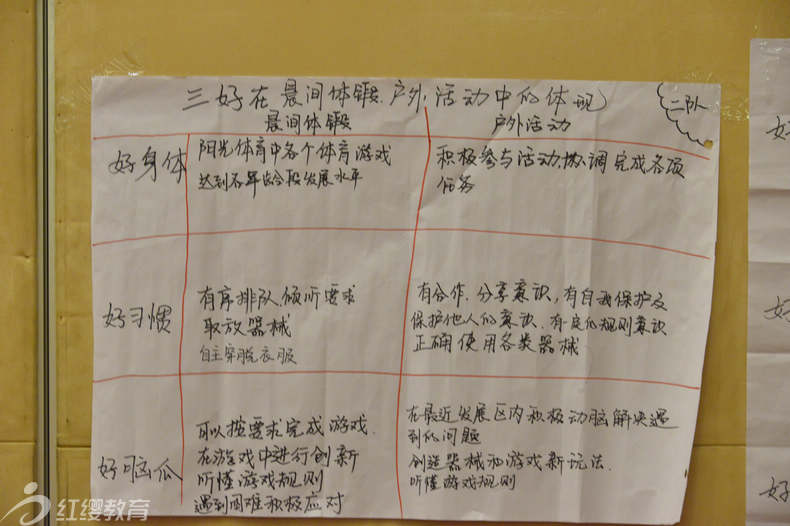 三好在晨间体锻、户外活动中的体现
二队
晨间体锻
户外活动
好身体
阳光体育中各个体育游戏
达到各年龄段发展水平
积极参与活动、协调完成各项
任务
好习惯
有序排队、倾听要求
取放器械
自主穿脱衣服
有合作、分享意识,有自我保护及
保护他人的意识、有一定的规则意识
正确使用各类器械
好脑瓜
可以按要求完成游戏.
在游戏中进行创新
听懂游戏规则
遇到困难积极应对
在最近发展区内积极动脑解决遇
到的问题
创造器械和游戏新玩法.
听懂游戏规则
好
好
好
红缨教育